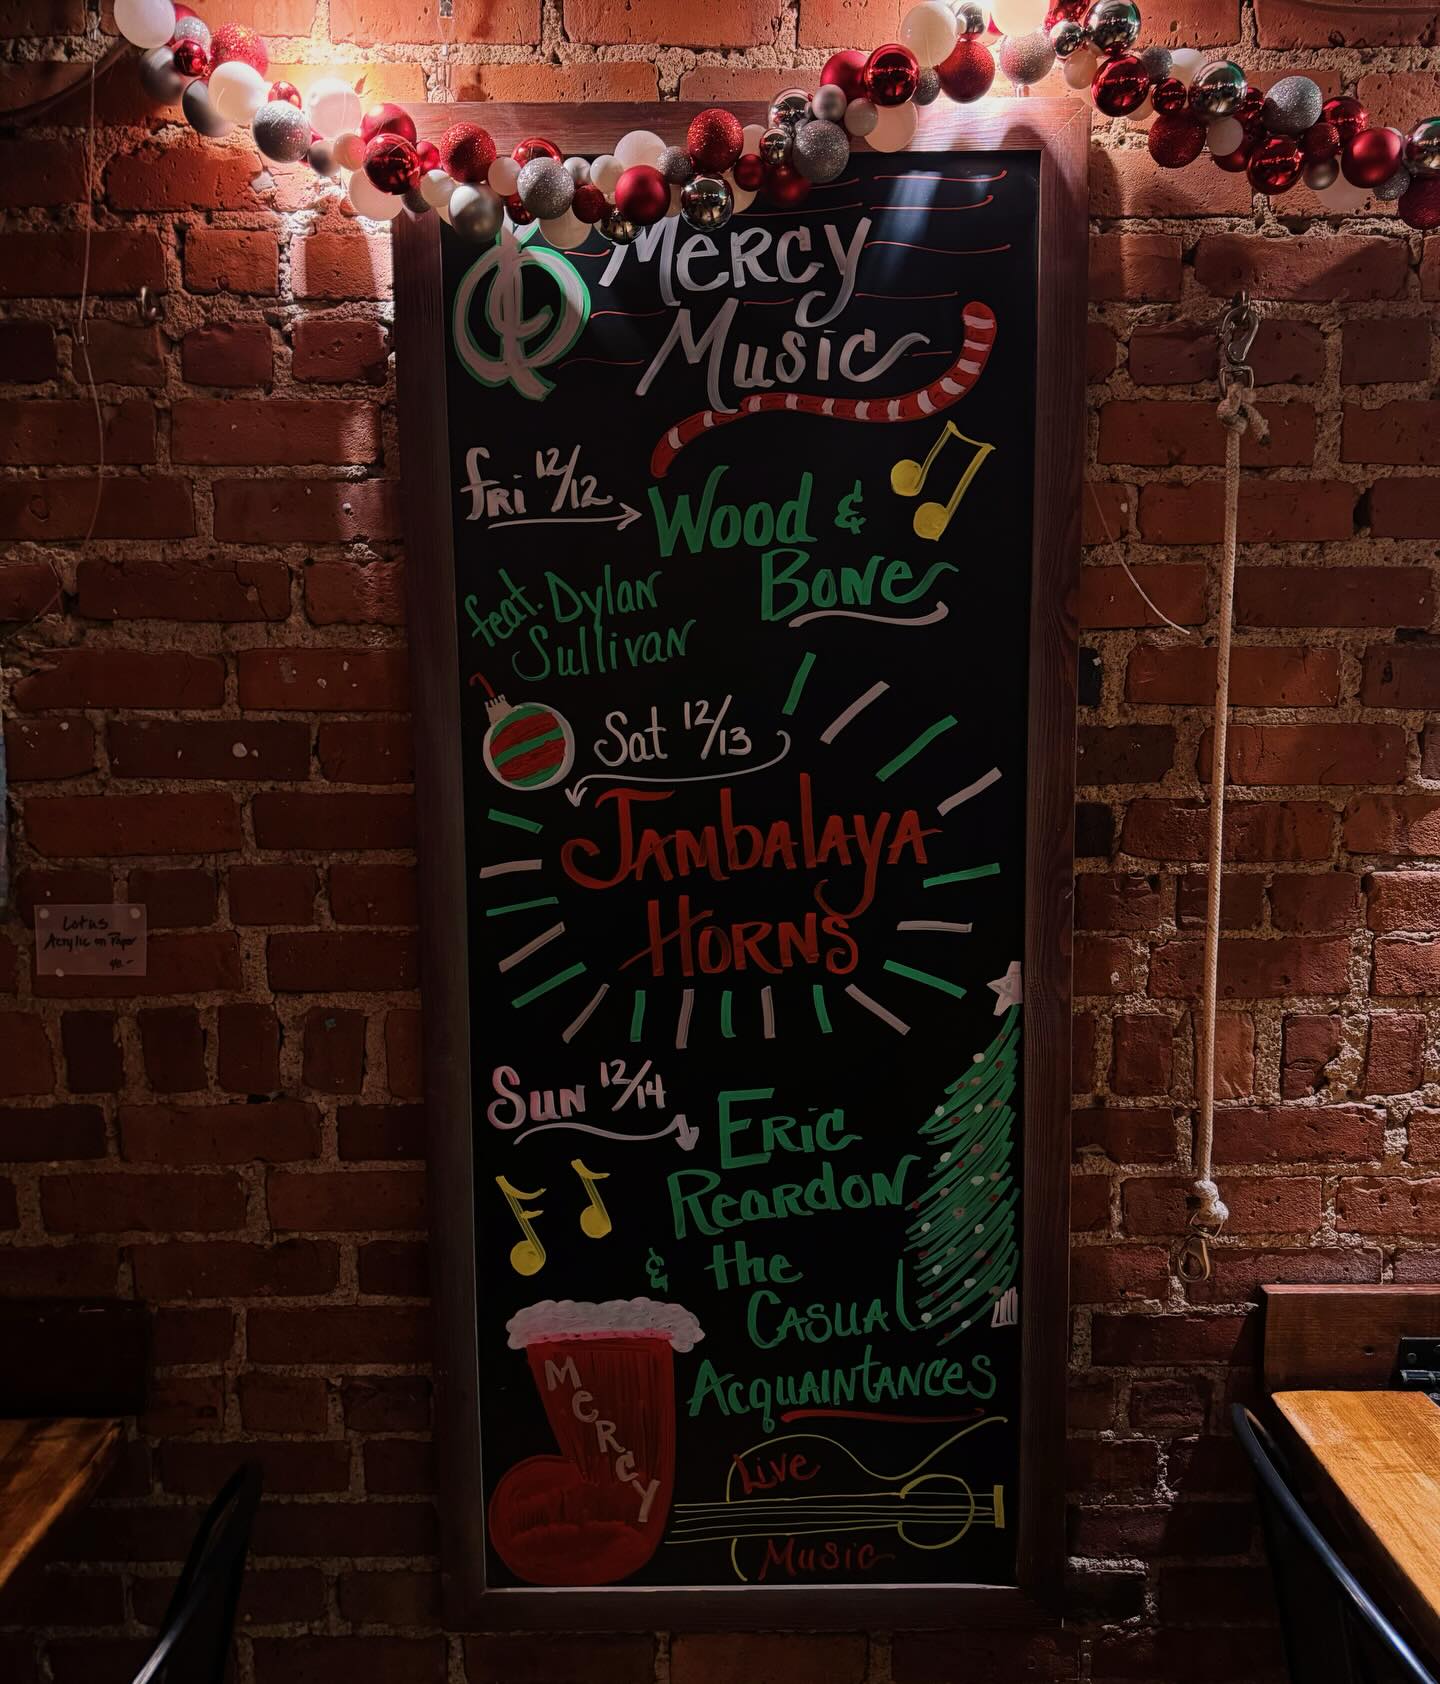 Mercy
Music
Fri 12/12
Wood &
Bone
feat. Dylan
Sullivan
Sat 12/13
Jambalaya
Horns
Sun 12/14
Eric
Reardon
& the
Casual
Acquaintances
Mercy
Live
Music
Lotus
Acrylic on Paper